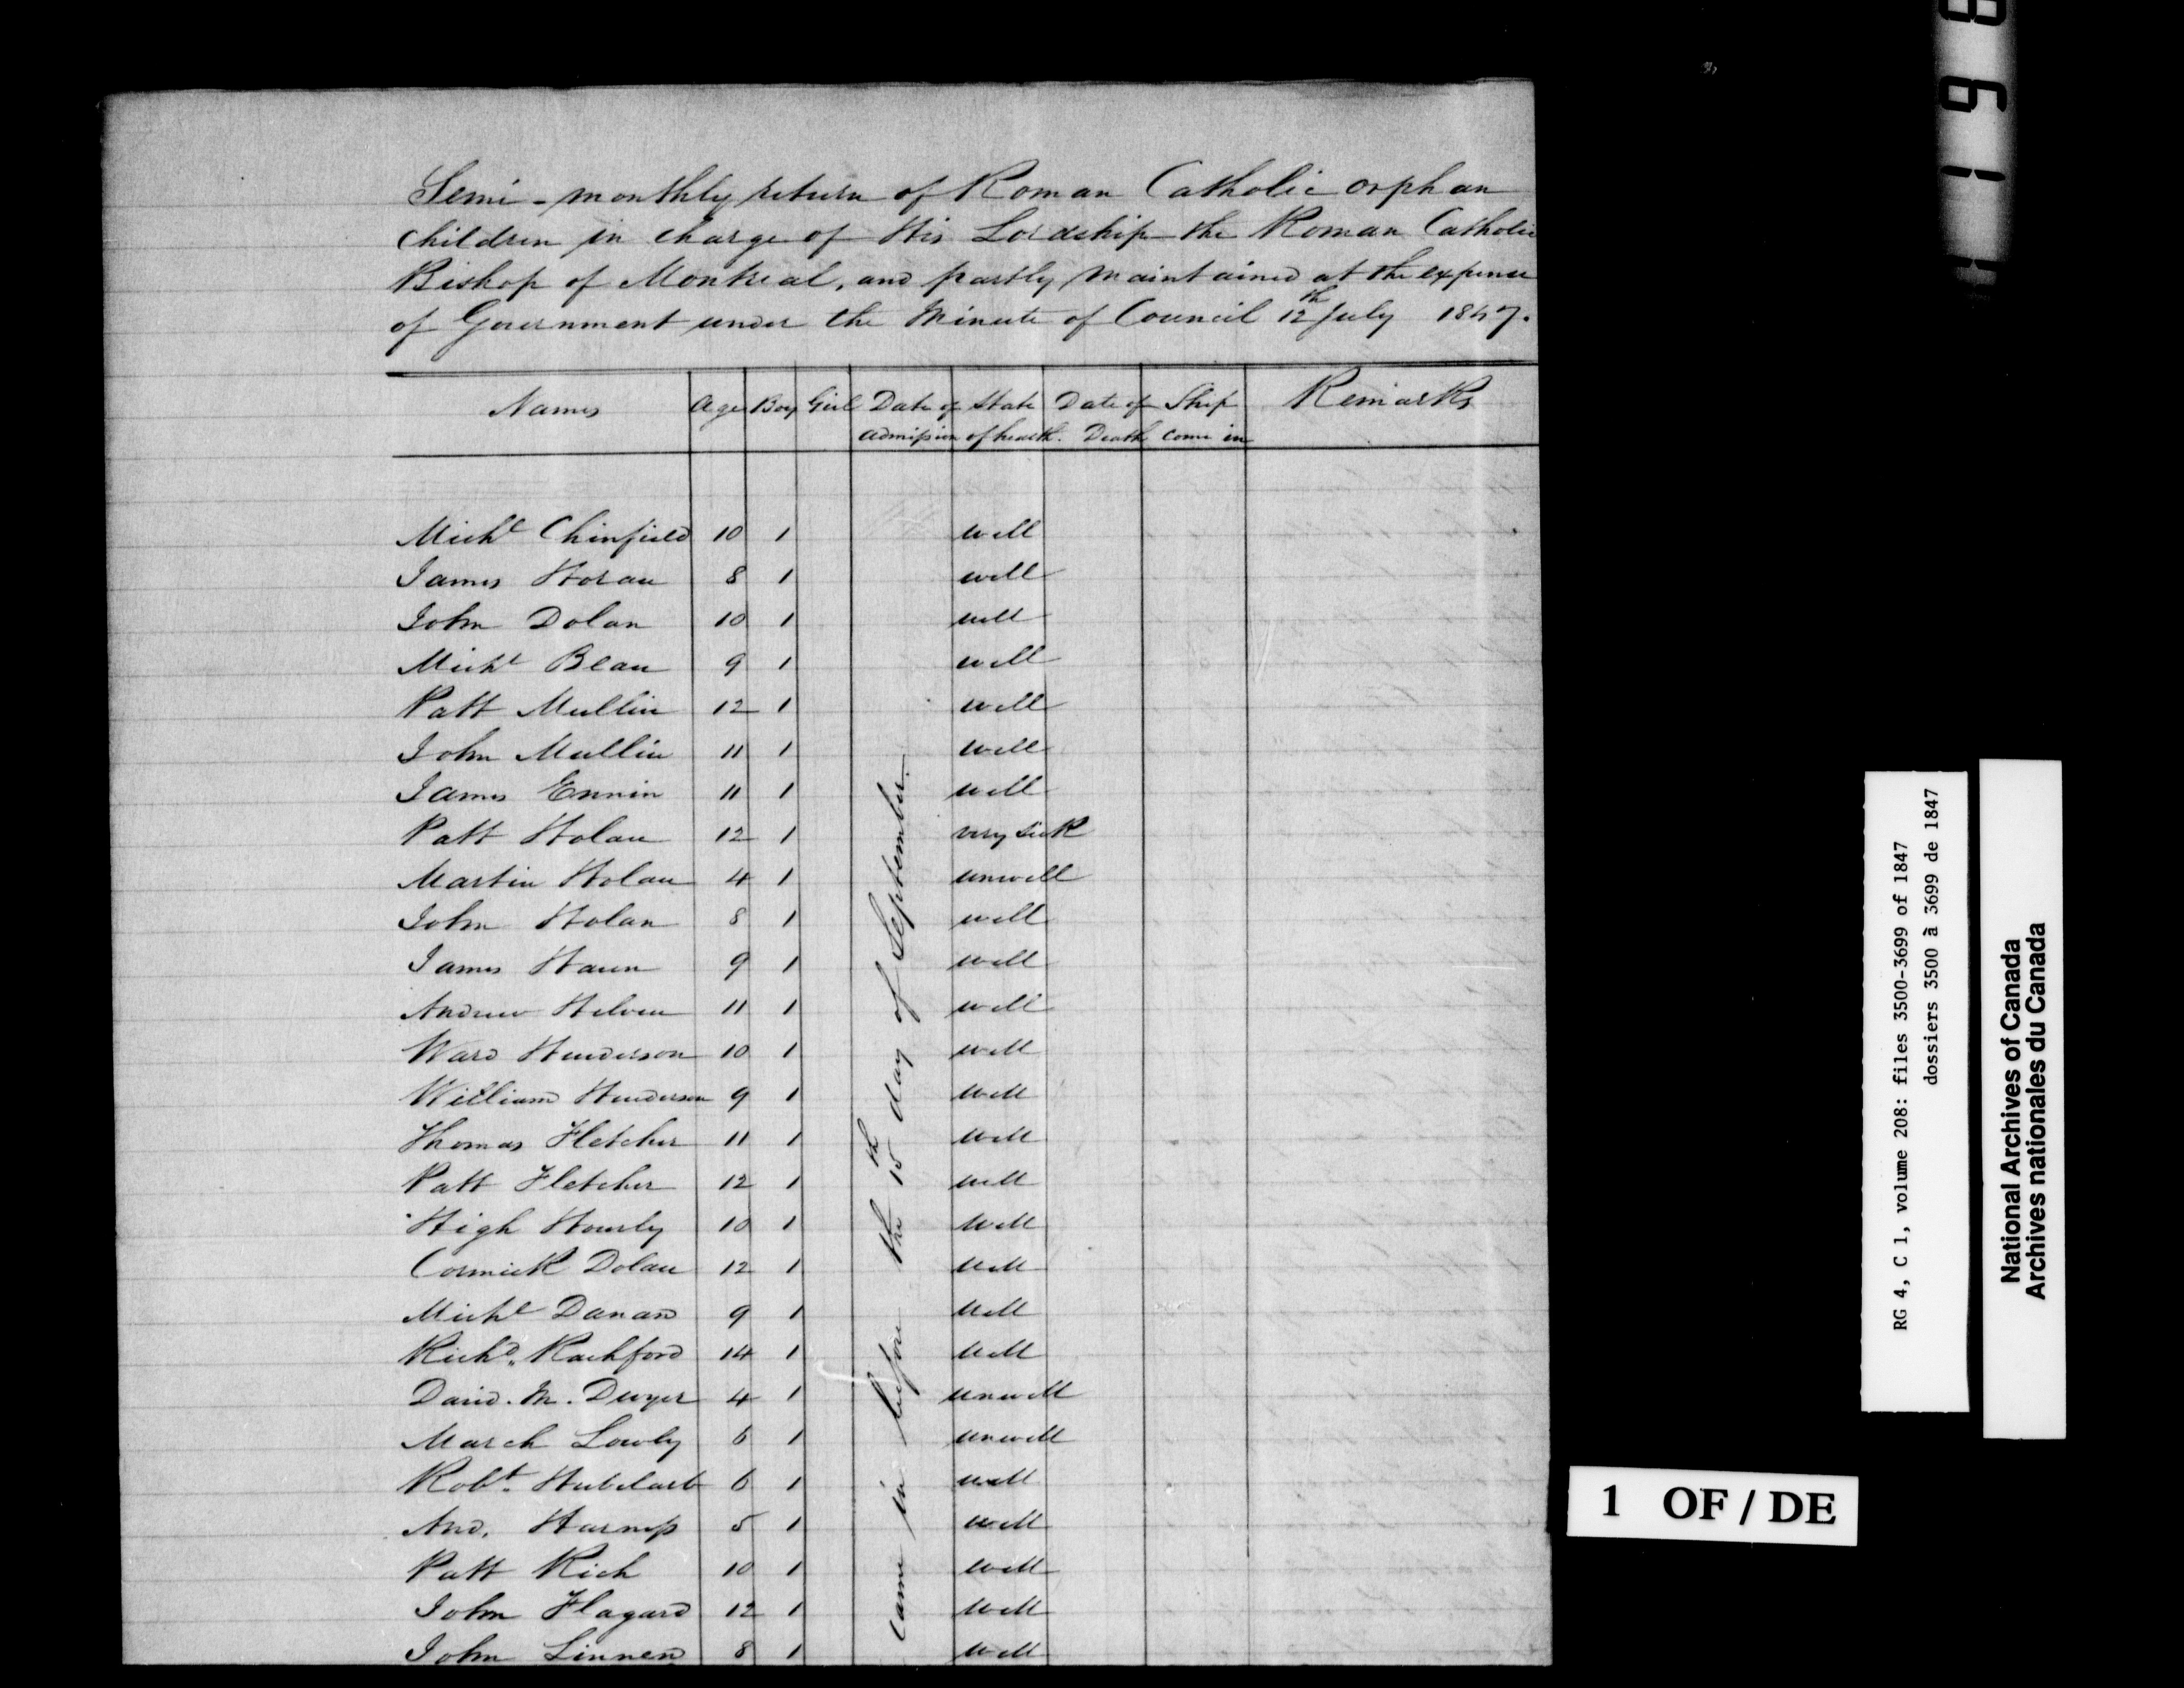 Semi-monthly return of Roman Catholic orphan
children in charge of His Lordship the Roman Catholic
Bishop of Montreal, and partly maintained at the expense
of Government under the Minute of Council 12th July 1847.
Names Age Boy Girl Date of admission State of health. Date of Death Ship come in Remarks
Michl Chinfield 10 1 well
James Horan 8 1 well
John Dolan 10 1 well
Michl Blan 9 1 well
Patt Mullin 12 1 well
John Mullin 11 1 well
James Ennin 11 1 well
Patt Holan 12 1 very sick
Martin Holan 4 1 unwell
John Holan 8 1 well
James Haun 9 1 well
Andrew Helven 11 1 well
Ward Henderson 10 1 well
William Henderson 9 1 well
Thomas Fletcher 11 1 well
Patt Fletcher 12 1 well
High Hourly 10 1 well
Cormick Dolan 12 1 well
Michl Danard 9 1 well
Richd. Rachford 14 1 well
David. M. Dwyer 4 1 unwell
March Lowly 6 1 unwell
Robt. 6 1 well
And. Harness 5 1 well
Patt Rich 10 1 well
John Flagard 12 1 well
John Linnend 8 1 well
Came in before the 15th day of September.
1 OF / DE
RG 4, C 1, volume 208: files 3500-3699 of 1847
dossiers 3500 à 3699 de 1847
National Archives of Canada
Archives nationales du Canada